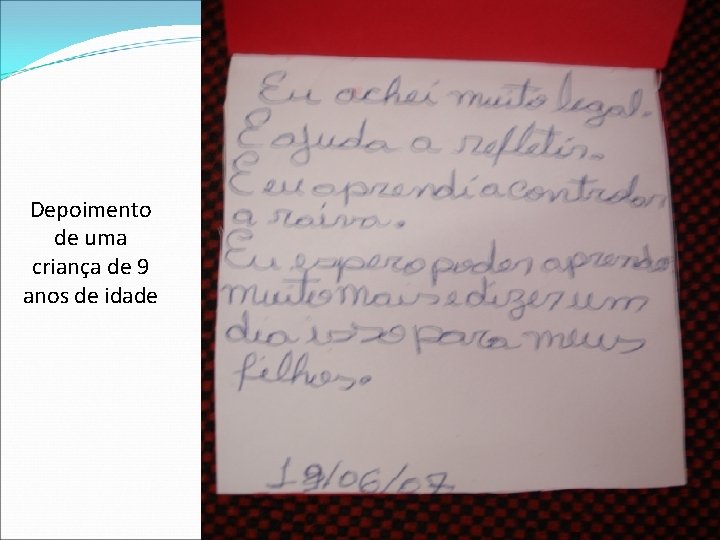 Depoimento
de uma
criança de 9
anos de idade
Eu achei muito legal.
E ajuda a refletir.
E eu aprendi a controlar
a raiva.
Eu espero poder aprender
muito mais e dizer um
dia isso para meus
filhos.
19/06/07